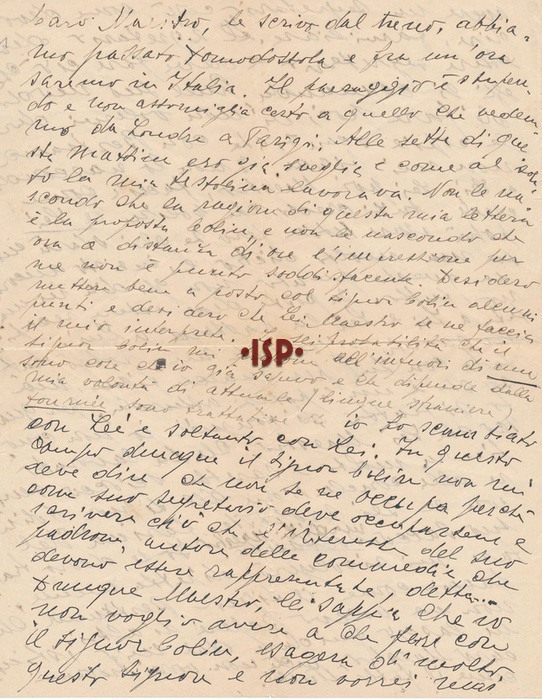 Caro Maestro, le scrivo dal treno, abbia=
mo passato Domodossola e fra un'ora
saremo in Italia. Il paesaggio è stupen
do e non assomiglia certo a quello che vedem
mo da Londra a Parigi. Alle sette di que
sta mattina ero già sveglia e come al soli
to la mia testolina lavorava. Non le na
scondo che la ragione di questa mia lettera
è la proposta Colin, e non le nascondo che
ora a distanza di ore l'impressione per
me non è punto soddisfacente. Desidero
mettere bene a posto col signor Colin alcuni
punti e desidero che lei Maestro se ne faccia
il mio interprete. probabilità che il
signor Colin mi all'infuori di una
sono cose che io già sapevo e che dipende dalla
mia volontà di attuale (lingue straniere)
tournée, sono trattative io scambiato
con Lei e soltanto con Lei. In questo
campo dunque il signor Colin non mi
deve dire che non se ne occupa perchè
come suo segretario deve occuparsene e
scrivere ciò che l'interesse del suo
padrone autore delle commedie che
devono essere rappresentate, detta...
Dunque Maestro, le sappia che io
non voglio avere a che fare con
il signor Colin, esagera di molto
questo signore e non vorrei mai
•ISP•